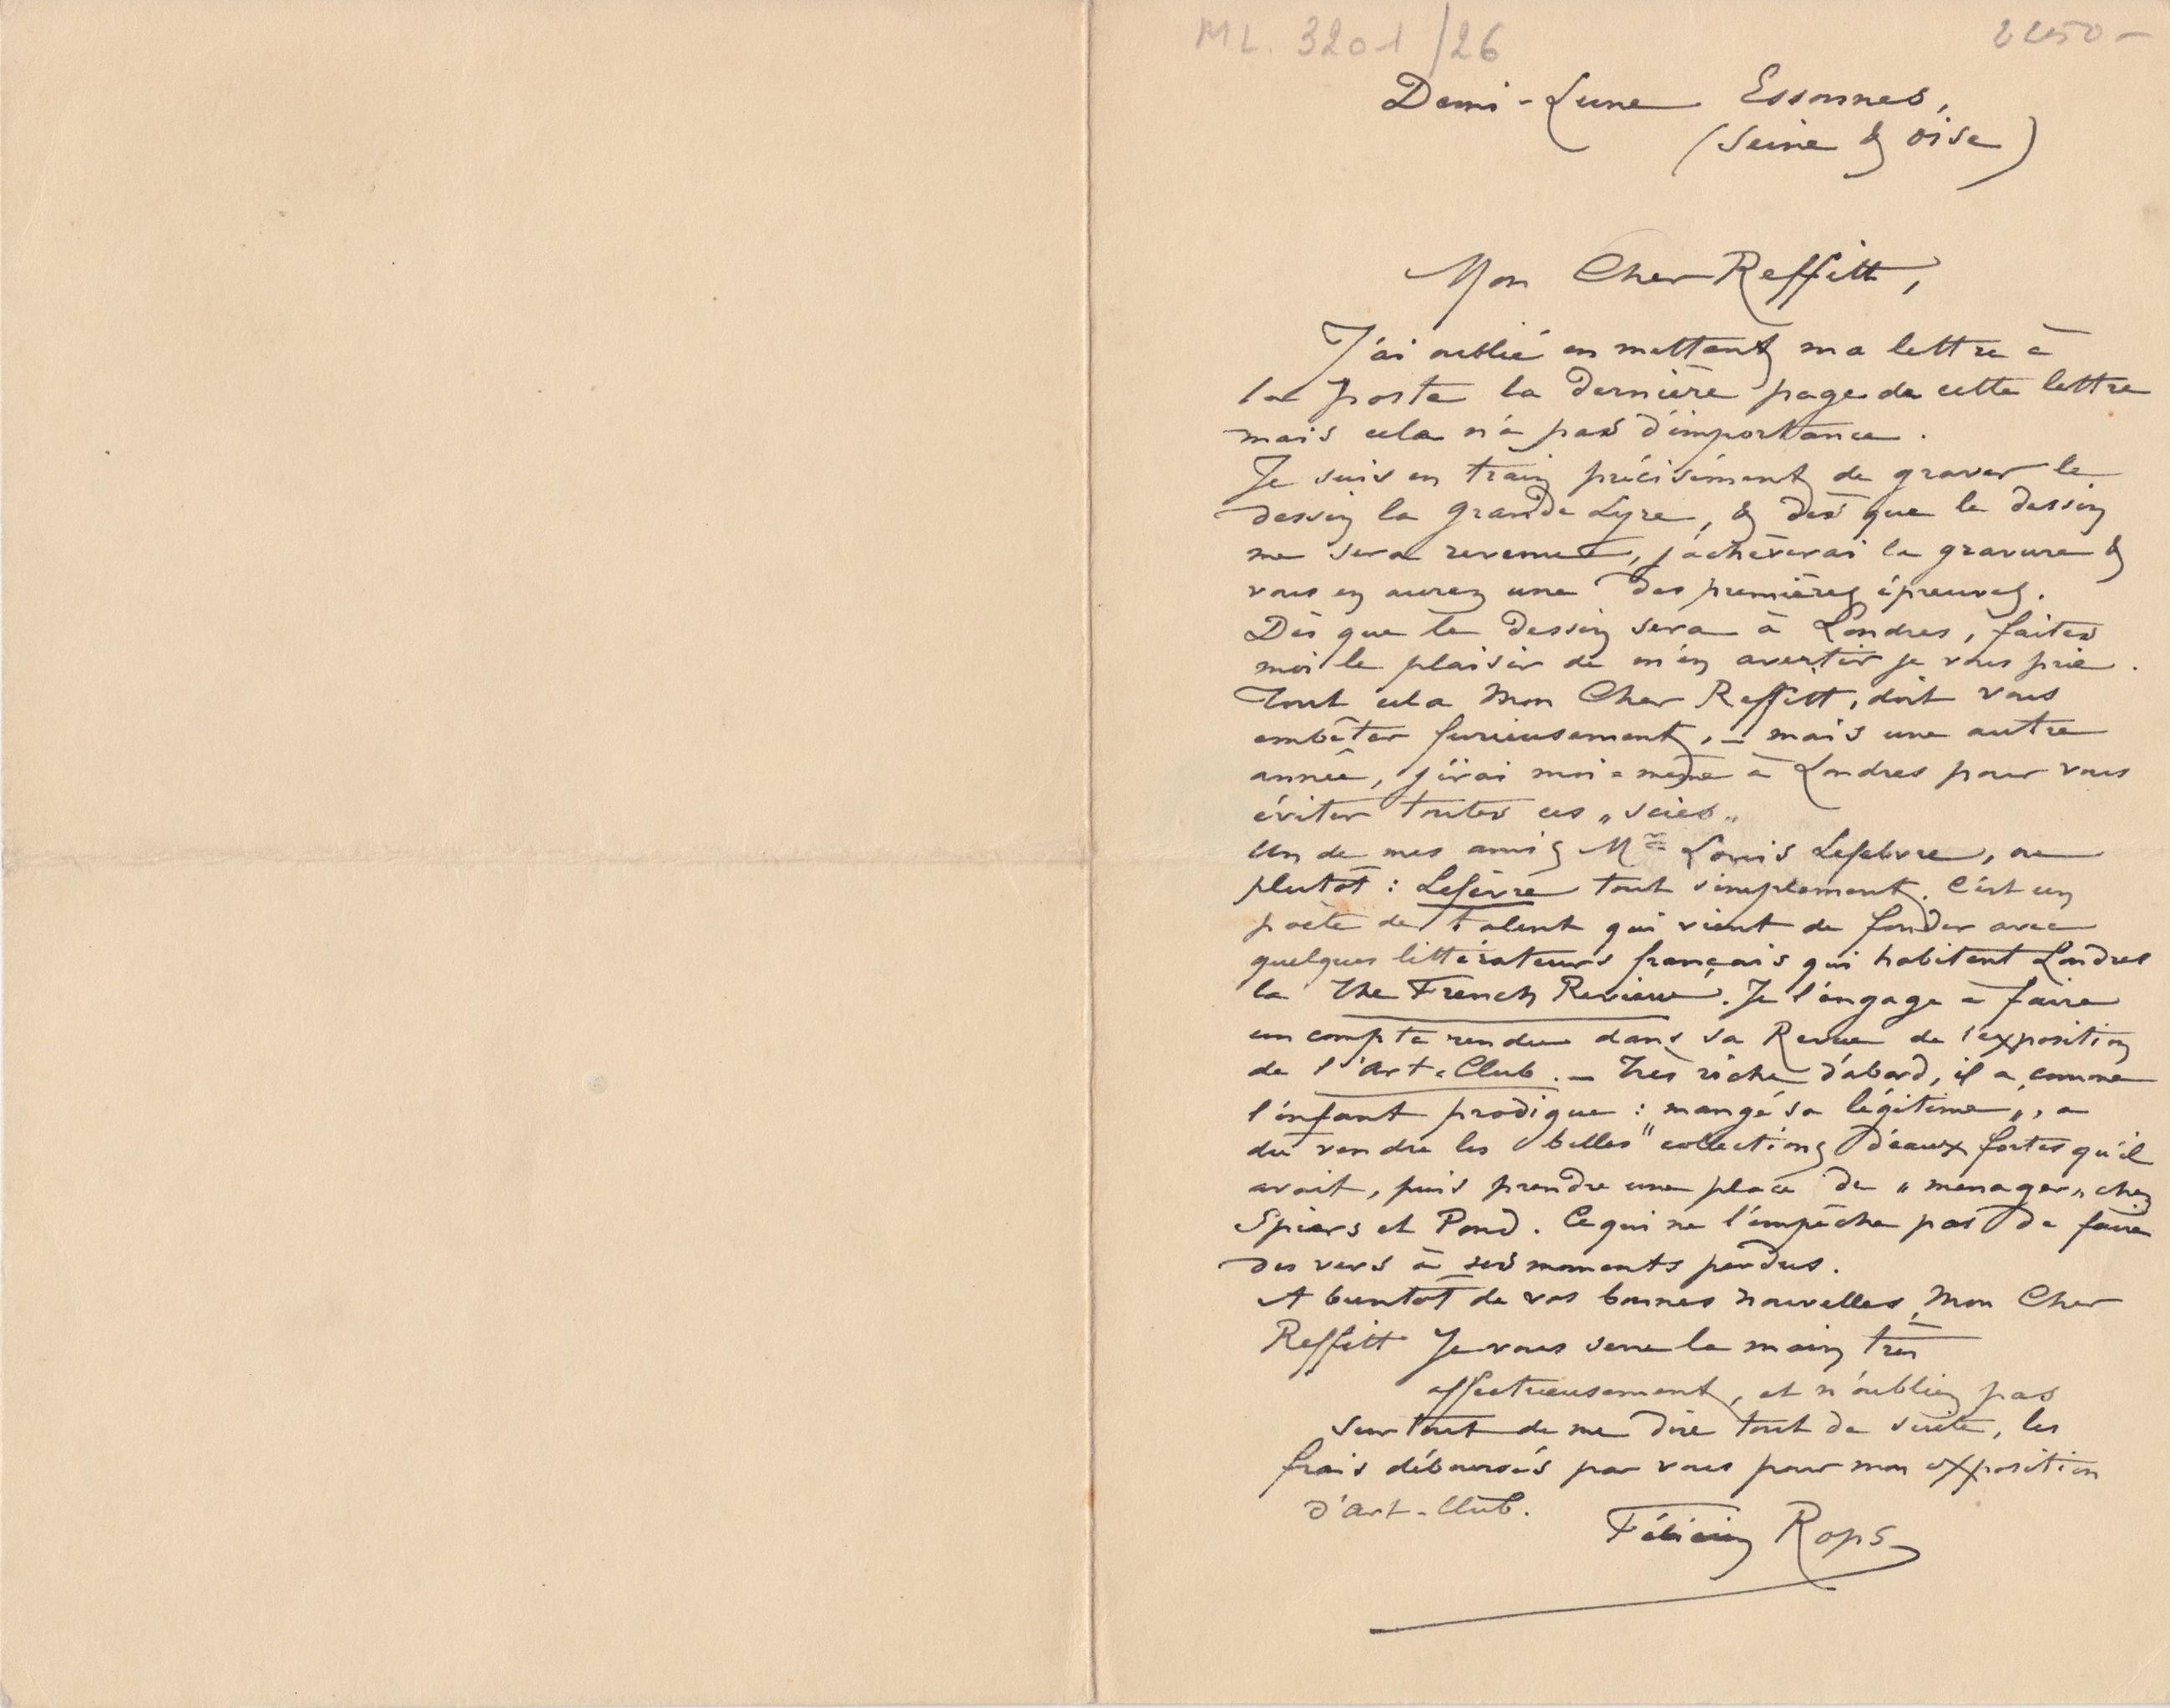 ML. 3201/26
2250 –
Demi-Lune Essonnes,
(Seine & Oise)
Mon Cher Reffitt,
J'ai oublié en mettant ma lettre à
la poste la dernière page de cette lettre
mais cela n'a pas d'importance.
Je suis en train précisément de graver le
dessin la Grande Lyre, & dès que le dessin
me sera revenu, j'achèverai la gravure &
vous en aurez une des premières épreuves.
Dès que le dessin sera à Londres, faites
moi le plaisir de m'en avertir je vous prie.
Tout cela Mon Cher Reffitt, doit vous
embêter furieusement, – mais une autre
année, j'irai moi=même à Londres pour vous
éviter toutes ces „scies„
Un de mes amis Mr Louis Lefebvre, ou
plutôt : Lefèvre tout simplement. C'est un
poète de talent qui vient de fonder avec
quelques littérateurs français qui habitent Londres
la The French Review. Je l'engage à faire
un compte rendu dans sa Revue de l'exposition
de l'Art-Club. – Très riche d'abord, il a, comme
l'enfant prodigue : mangé sa légitime„, a
du vendre les belles collections d'eaux fortes qu'il
avait, puis prendre une place de „menager„ chez
Spiers et Pond. Ce qui ne l'empêche pas de faire
des vers à ses moments perdus.
A bientôt de vos bonnes nouvelles, Mon Cher
Reffitt Je vous serre la main très
affectueusement, et n'oubliez pas
surtout de me dire tout de suite, les
frais déboursés par vous pour mon exposition
d'Art-Club.
Félicien Rops